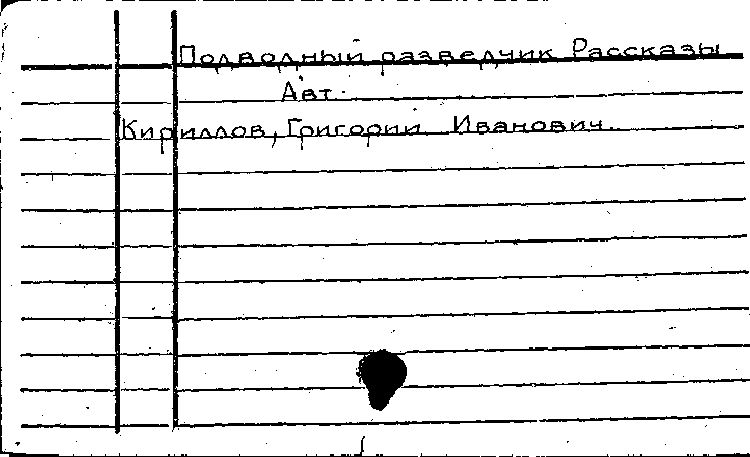 Подводный разведчик Рассказы
Авт.
Кириллов, Григорий Иванович.